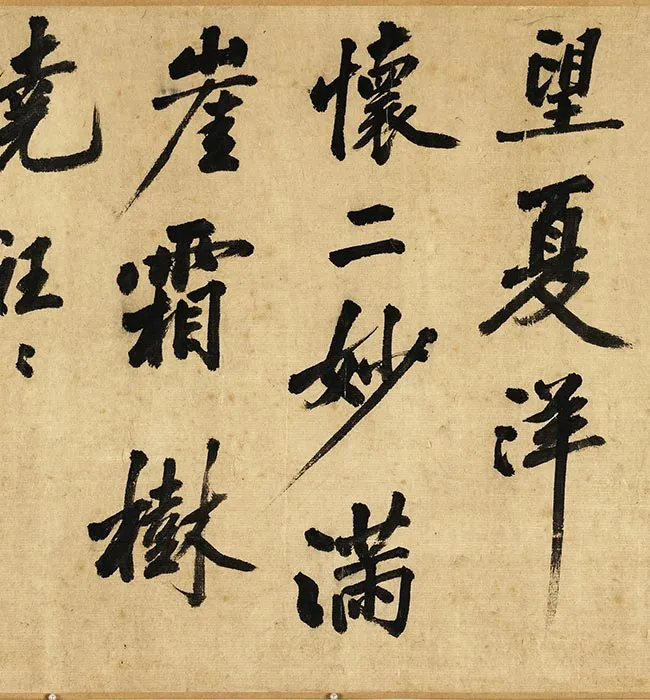 望夏洋
懷二妙滿
崖霜樹